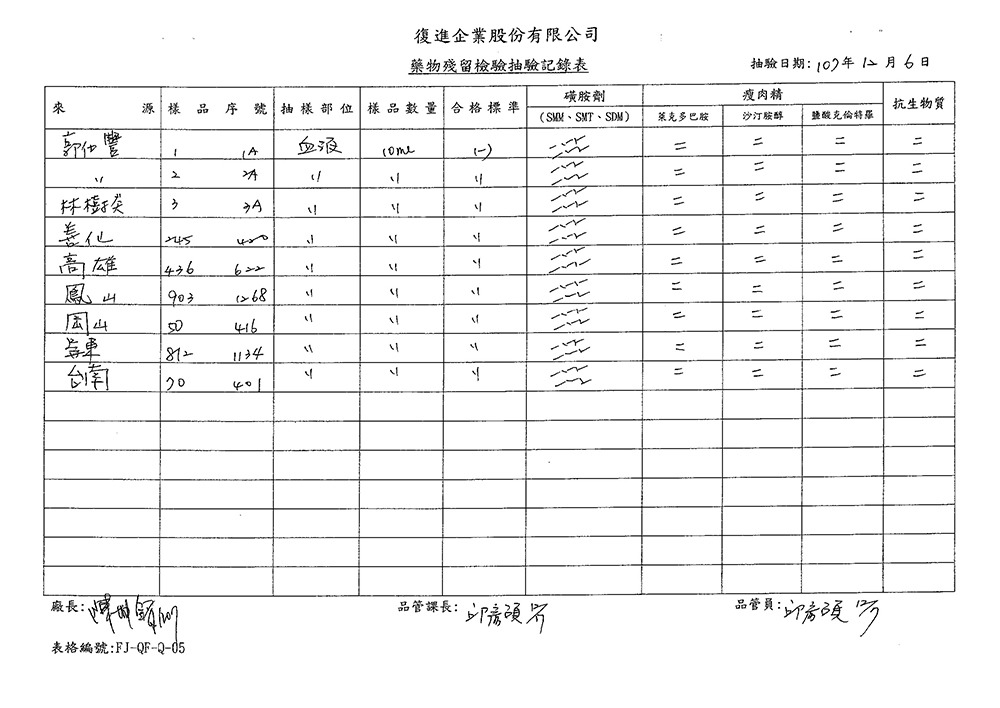 復進企業股份有限公司
藥物殘留檢驗抽驗記錄表
抽驗日期: 107年 12 月 6 日
來源 樣品序號 抽樣部位 樣品數量 合格標準 磺胺劑 (SMM、SMT、SDM) 瘦肉精 萊克多巴胺 沙汀胺醇 鹽酸克倫特羅 抗生物質
郭仕豐 1 1A 血液 10ml (-) = = = =
〃 2 2A 〃 〃 〃 = = = =
林樹 3 3A 〃 〃 〃 = = = =
善化 245 420 〃 〃 〃 = = = =
高雄 436 622 〃 〃 〃 = = = =
鳳山 903 1268 〃 〃 〃 = = = =
岡山 50 416 〃 〃 〃 = = = =
屏東 812 1134 〃 〃 〃 = = = =
台南 70 401 〃 〃 〃 = = = =
廠長: 品管課長: 邱彥碩 品管員: 邱彥碩
表格編號:FJ-QF-Q-05